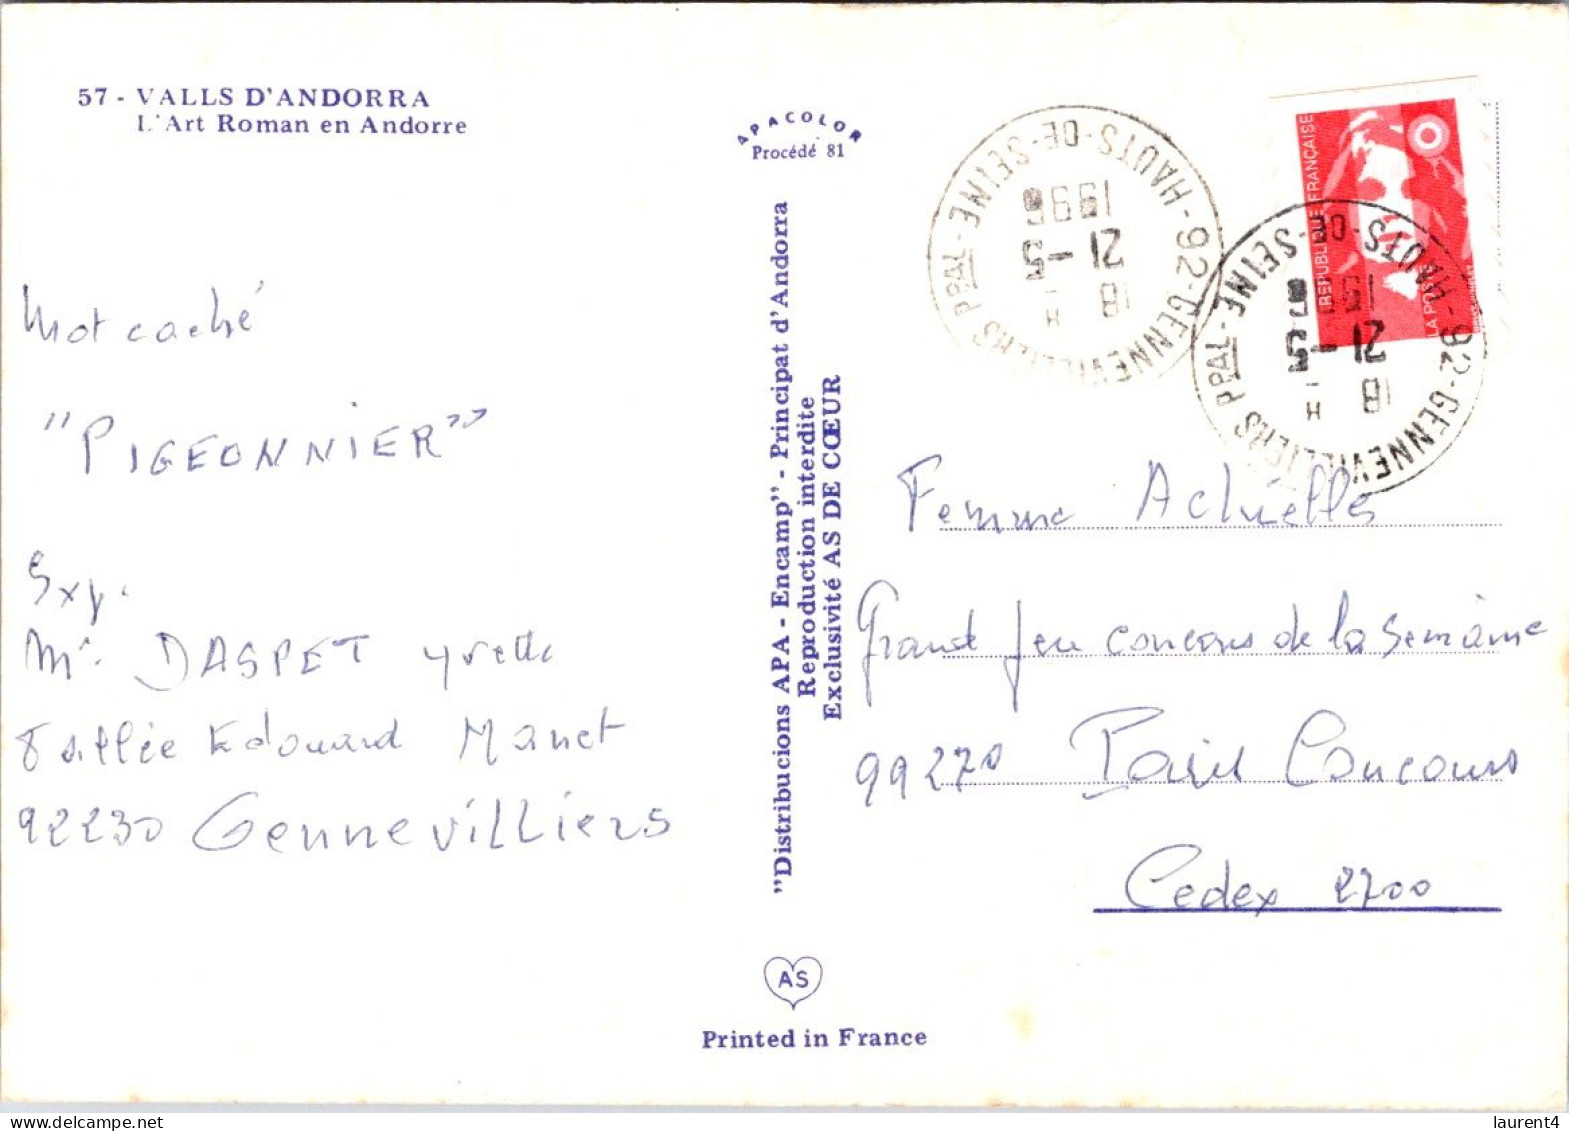 57 - VALLS D'ANDORRA
L'Art Roman en Andorre
APACOLOR
Procédé 81
Mot caché
"PIGEONNIER"
Exp.
DASPET Yvette
allée Edouard Manet
92230 Gennevilliers
"Distribucions APA - Encamp" - Principat d'Andorra
Reproduction interdite
Exclusivité AS DE CŒUR
92-GENNEVILLIERS PPAL-HAUTS-DE-SEINE-
18 H
21 - 5
1996
RÉPUBLIQUE FRANÇAISE
LA POSTE
92-GENNEVILLIERS PPAL-HAUTS-DE-SEINE-
18 H
21 - 5
Femme Actuelle
Grand Jeu concours de la Semaine
99270 Paris Concours
Cedex 2700
AS
Printed in France
laurent4